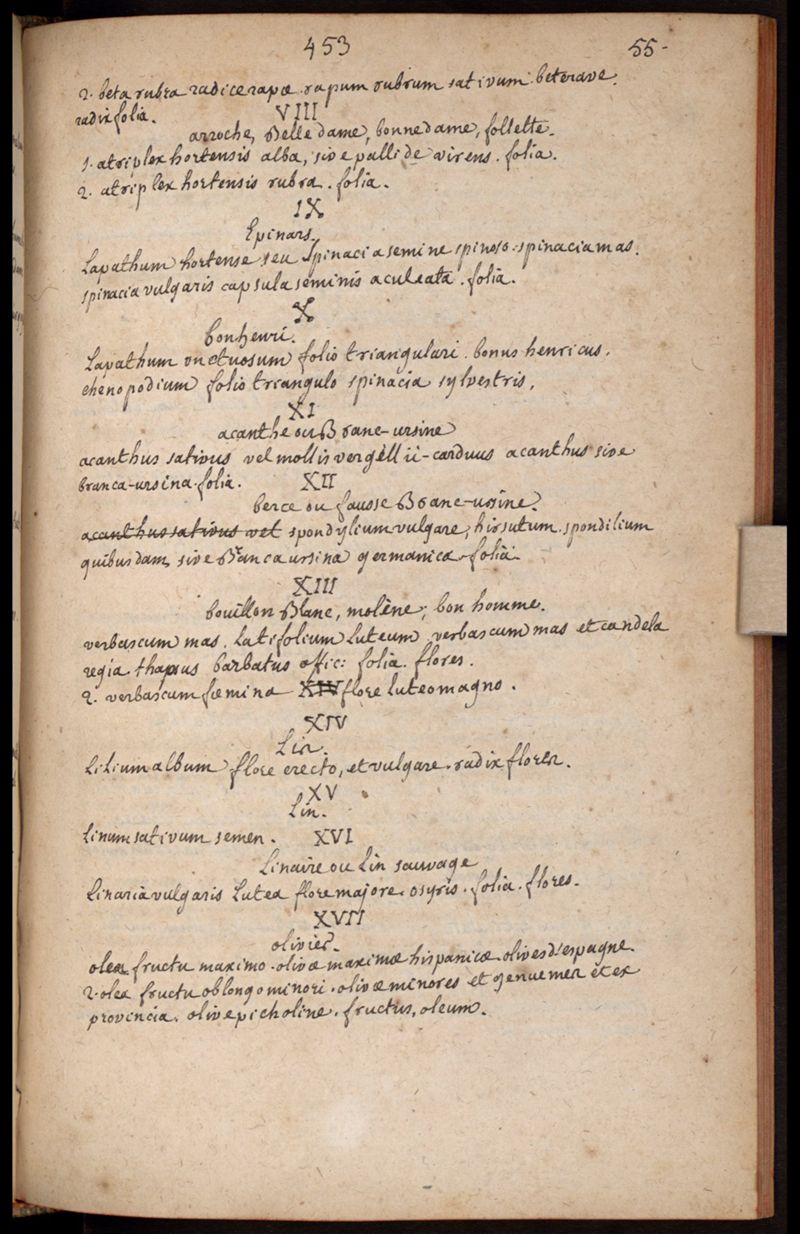 453
55-
2. beta rubra radice rapæ. rapum rubrum sativum. beterave.
radix folia.
VIII
arroche, Belle dame, bonne dame, follette.
1. atriplex hortensis alba, sive pallide virens. folia.
2. atriplex hortensis rubra. folia.
IX
Epinars.
Lapathum hortense seu Spinacia semine spinoso. spinacia mas.
spinacia vulgaris capsula seminis aculeata. folia.
X
bonhenri.
Lapathum unctuosum folio triangulari. bonus henricus.
chenopodium folio triangulo spinacia sylvestris.
XI
acanthe ou Brane-ursine
acanthus sativus vel mollis vergilii-carduus acanthus sive
branca-ursina. folia.
XII
berce ou fausse Brane-ursine.
acanthus sativus vel spondylium vulgare, hirsutum. spondilium
quibusdam, sive Branca ursina germanica. folia.
XIII
bouillon Blanc, molène, bon homme.
verbascum mas. Latifolium Luteum, verbascum mas et candela
regia. thapsus barbatus offic: folia. flores.
2. verbascum fœmina XIV flore luteo magno.
XIV
Lis.
Lilium album flore erecto, et vulgare. radix flores.
XV
Lin.
Linum sativum semen.
XVI
Linaire ou Lin sauvage
Linaria vulgaris Lutea flore majore. osyris. folia. flores.
XVII
olivier.
olea fructu maximo. olivæ maximæ hispanicæ. olives d'espagne.
2. olea fructu oblongo minori. olivæ minores et genuenses et ex
provincia. olive picholine. fructus, oleum.